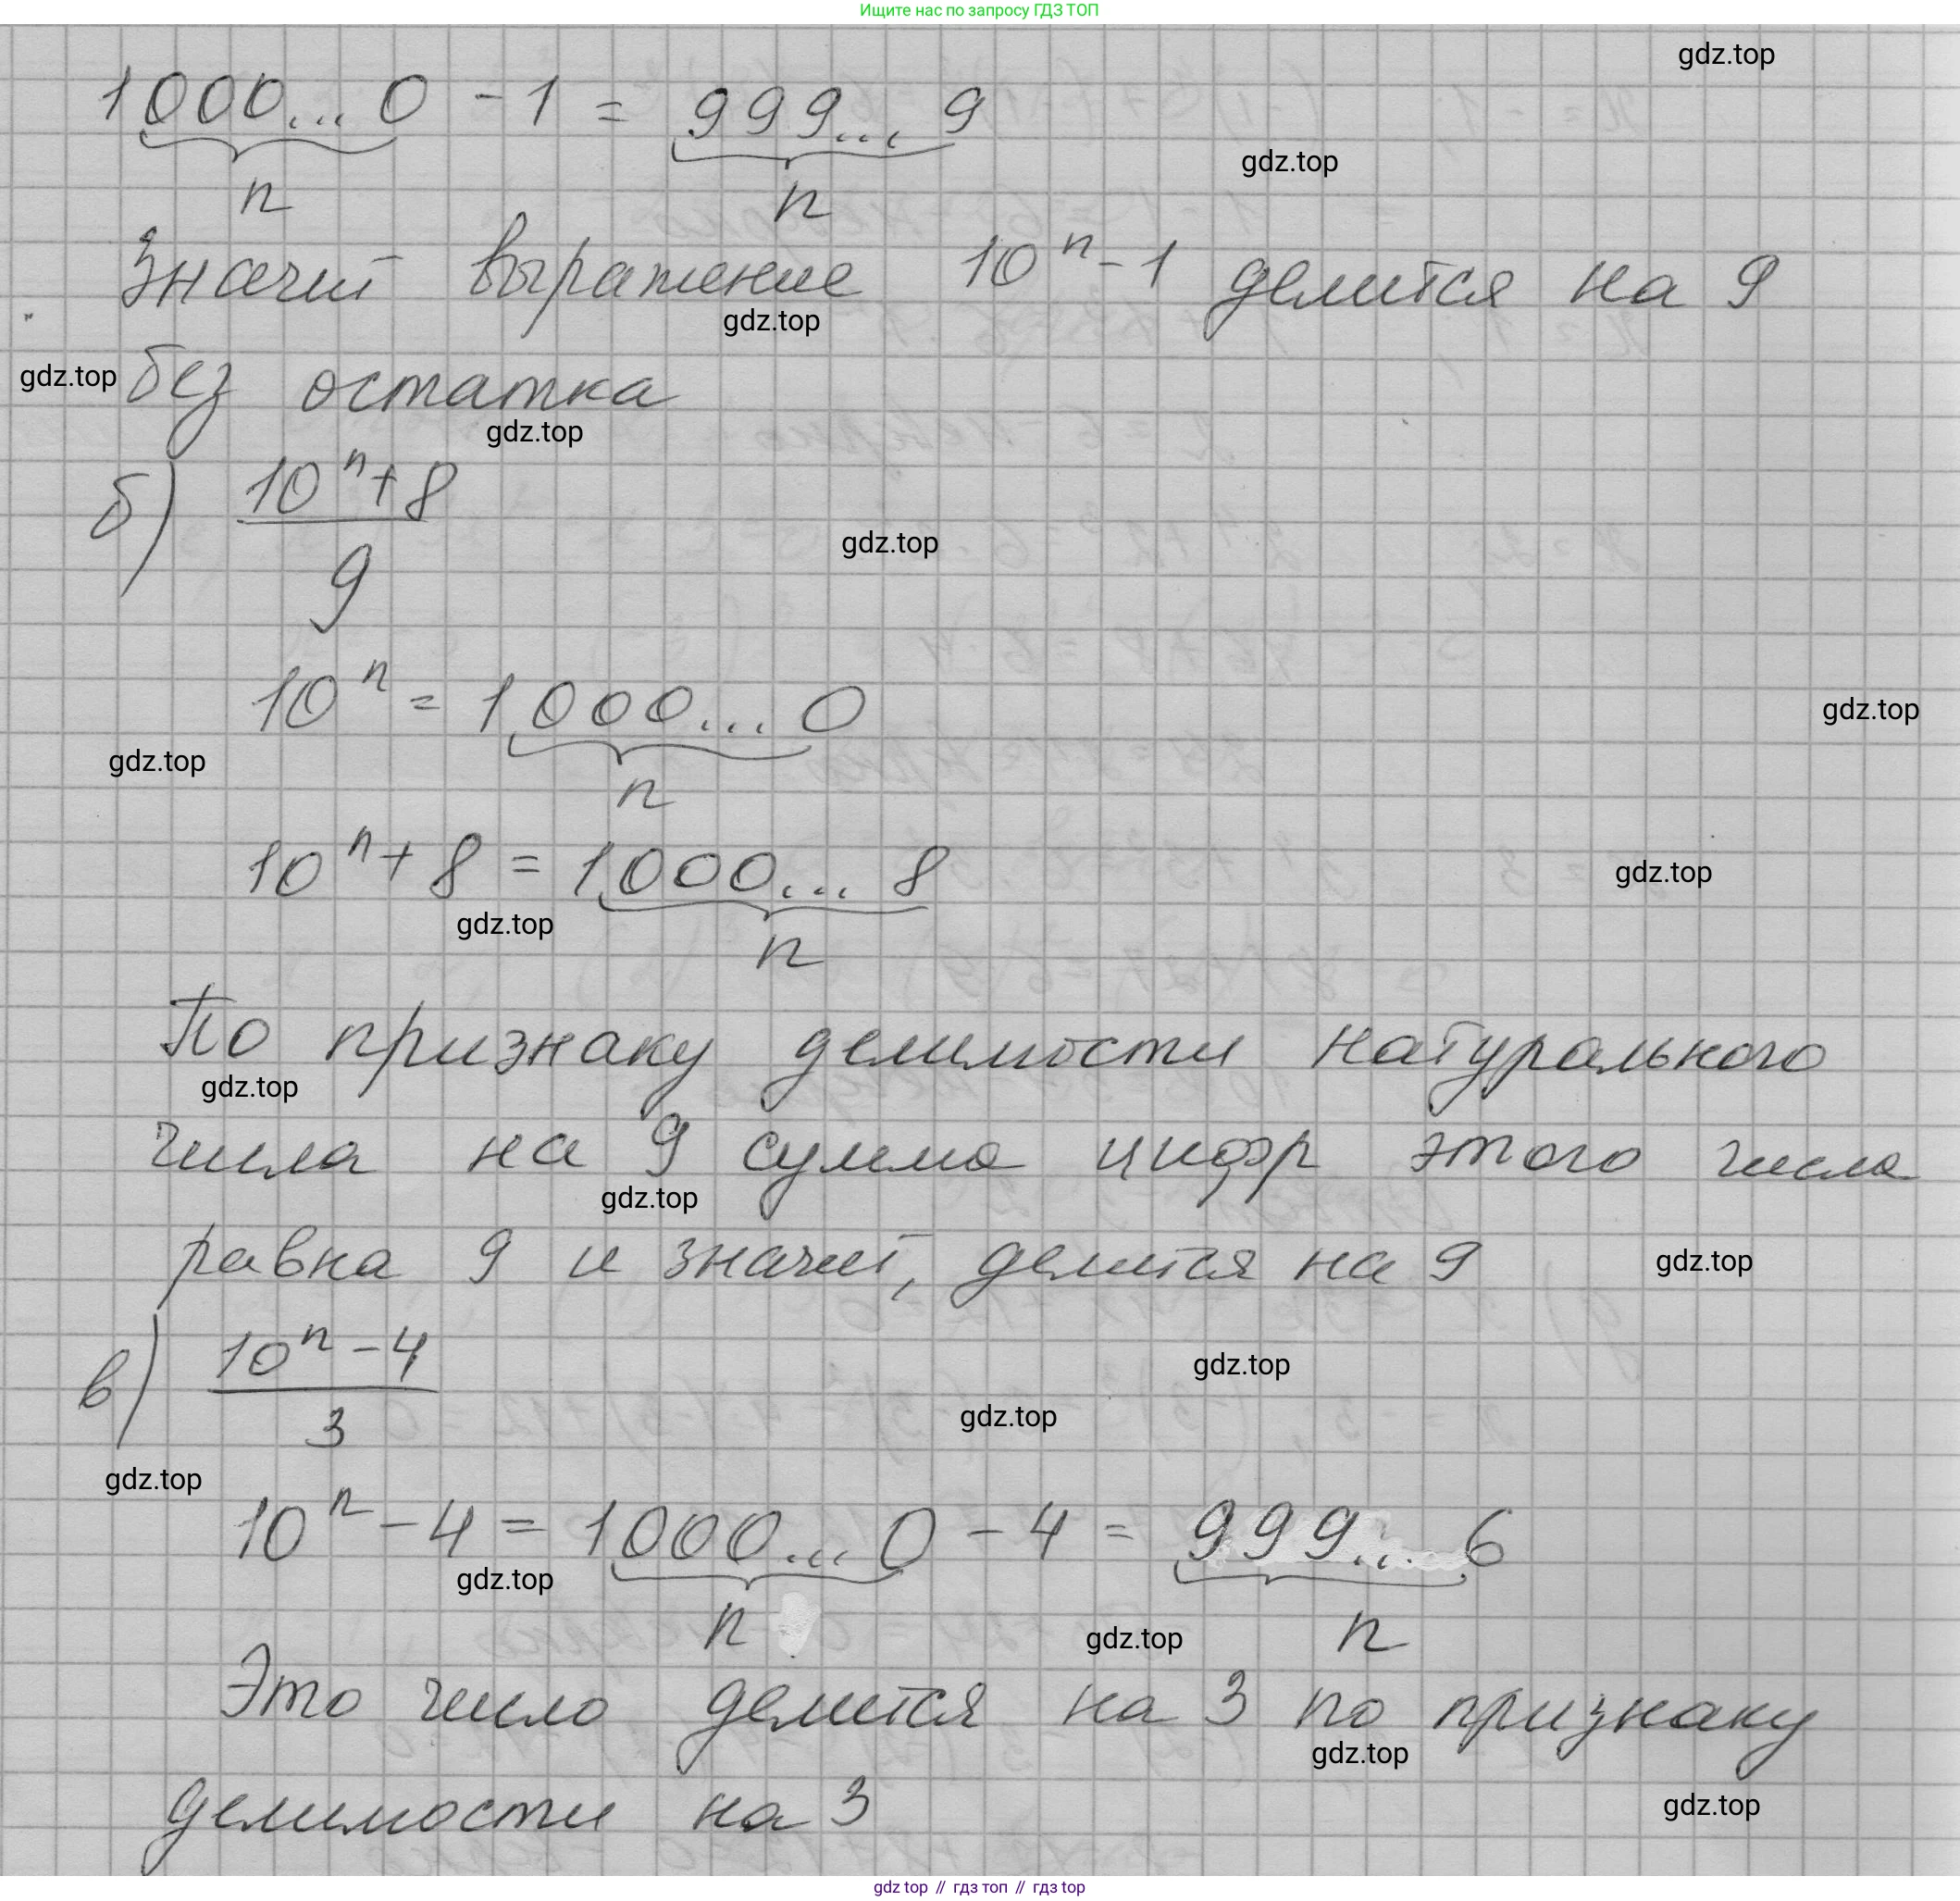 Ищите нас по запросу ГДЗ ТОП
gdz.top
1000...0 - 1 = 999...9
gdz.top
n n
Значит выражение 10ⁿ-1 делится на 9
gdz.top
gdz.top
без остатка
gdz.top
б) 10ⁿ+8
gdz.top
9
10ⁿ = 1000...0
gdz.top
gdz.top
n
10ⁿ+8 = 1000...8
gdz.top
gdz.top
n
По признаку делимости натурального
gdz.top
числа на 9 сумма цифр этого числа
gdz.top
равна 9 и значит, делится на 9
gdz.top
в) 10ⁿ-4
gdz.top
gdz.top
3
gdz.top
10ⁿ-4 = 1000...0 - 4 = 999...6
gdz.top
n n
gdz.top
Это число делится на 3 по признаку
gdz.top
делимости на 3
gdz.top
gdz top // гдз топ // гдз top